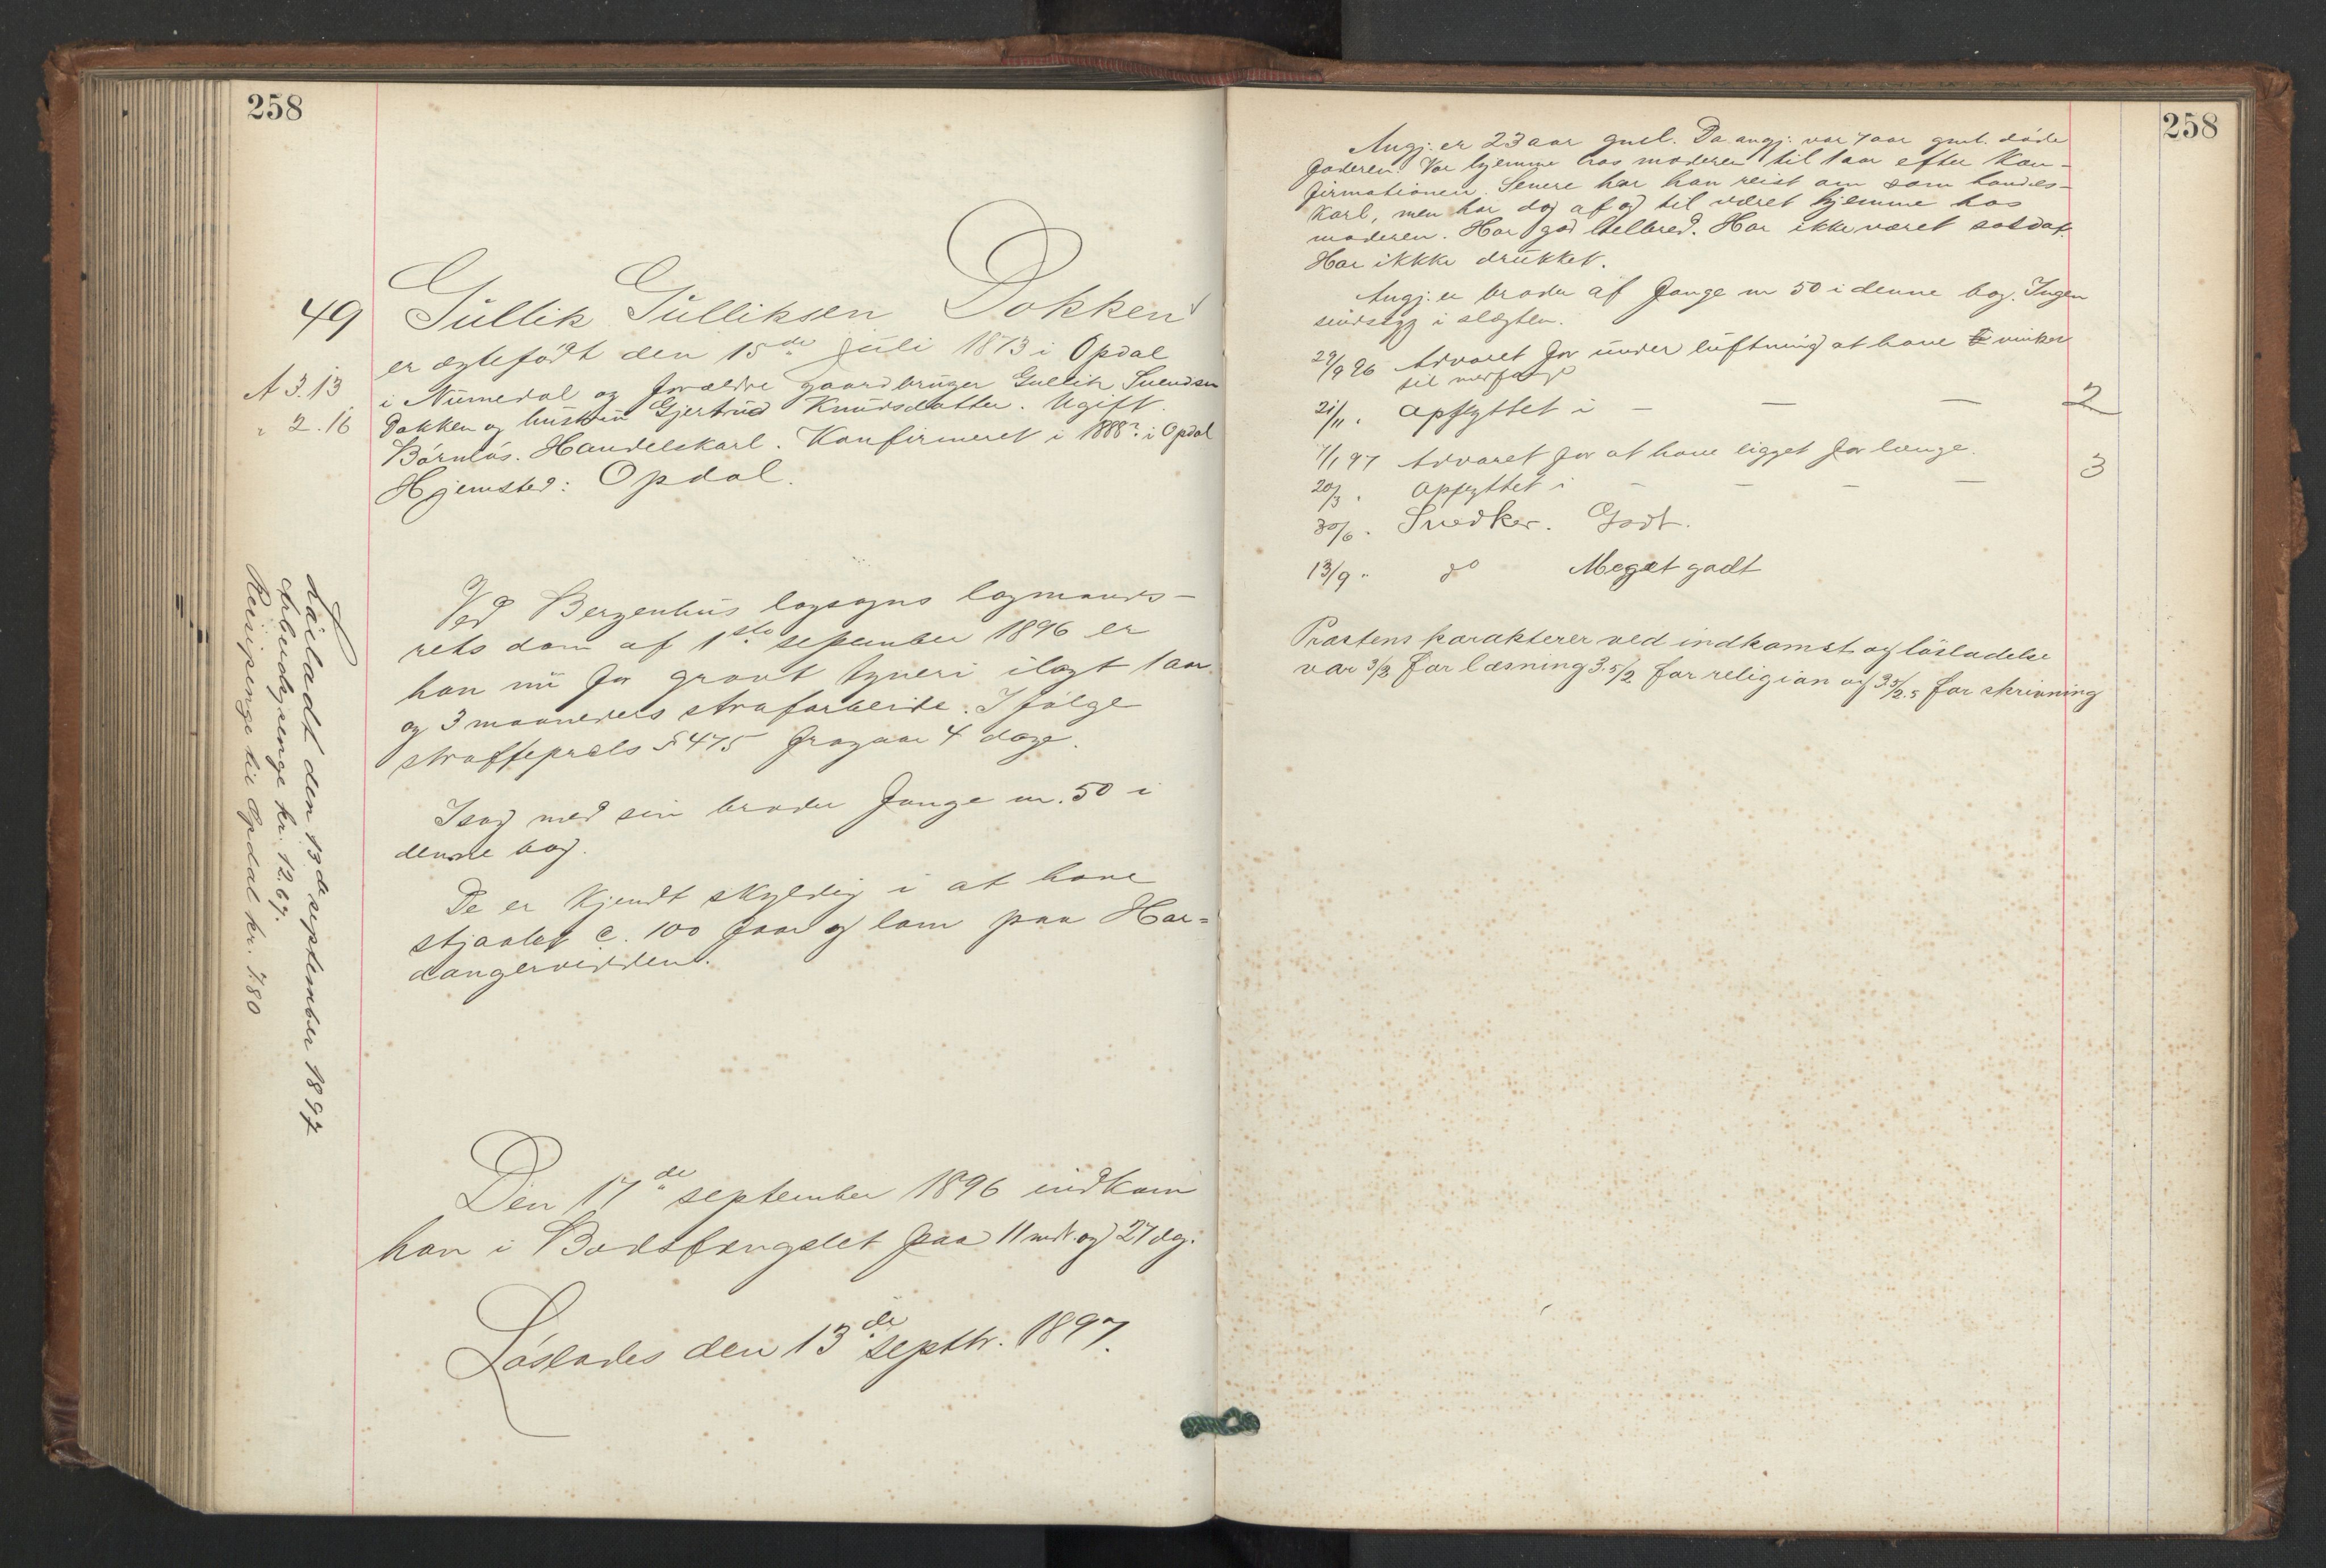 258
49 Gullik Gulliksen Dokken
er ægtefödt den 15de juli 1873 i Opdal
A 3.13 i Numedal og forældre gaardbruger Gullik Svendsen
" 2.16 Dokken og hustru Gjertrud Knudsdatter. Ugift.
Börnlös. Handelskarl. Konfirmeret i 1888? i Opdal
Hjemsted: Opdal.
Ved Bergenhus lagsogns lagmands-
rets dom af 1ste september 1896 er
han nu for grovt tyveri ilagt 1 aar
og 3 maaneders strafarbeide. I fölge
straffeprcls § 475 fragaar 4 dage.
I sag med sin broder fange nr. 50 i
denne bog.
De er kjendt skyldig i at have
stjaalet c. 100 faar og lam paa Har=
dangervidden.
Den 17de september 1896 indkom
han i Bodsfængslet paa 11 mdr. og 27 dg.
Löslades den 13de septbr. 1897.
Lösladt den 13de september 1897
Arbeidspenge kr. 12.67.
Reisepenge til Opdal kr. 7.80
258
Angj. er 23 aar gml. Da angj. var 7 aar gml. döde
faderen. Var hjemme hos moderen til 1 aar efter kon-
firmationen. Senere har han reist om som handels-
karl, men har dog af og til været hjemme hos
moderen. Har god helbred. Har ikke været soldat.
Har ikkke drukket.
Angj. er broder af fange nr 50 i denne bog. Ingen
sindssyg i slægten.
29/9 96 Advaret for under luftning at have vinket
til medfange
21/11 " Opflyttet i — — — 2
7/1 97 Advaret for at have ligget for længe.
20/3 " Opflyttet i — — — — 3
30/6 " Snedker. Godt.
13/9 " do Meget godt
Præstens karakterer ved indkomst og lösladelse
var 3/3 for læsning 3.5/2 for religion og 3.5/2.5 for skrivning